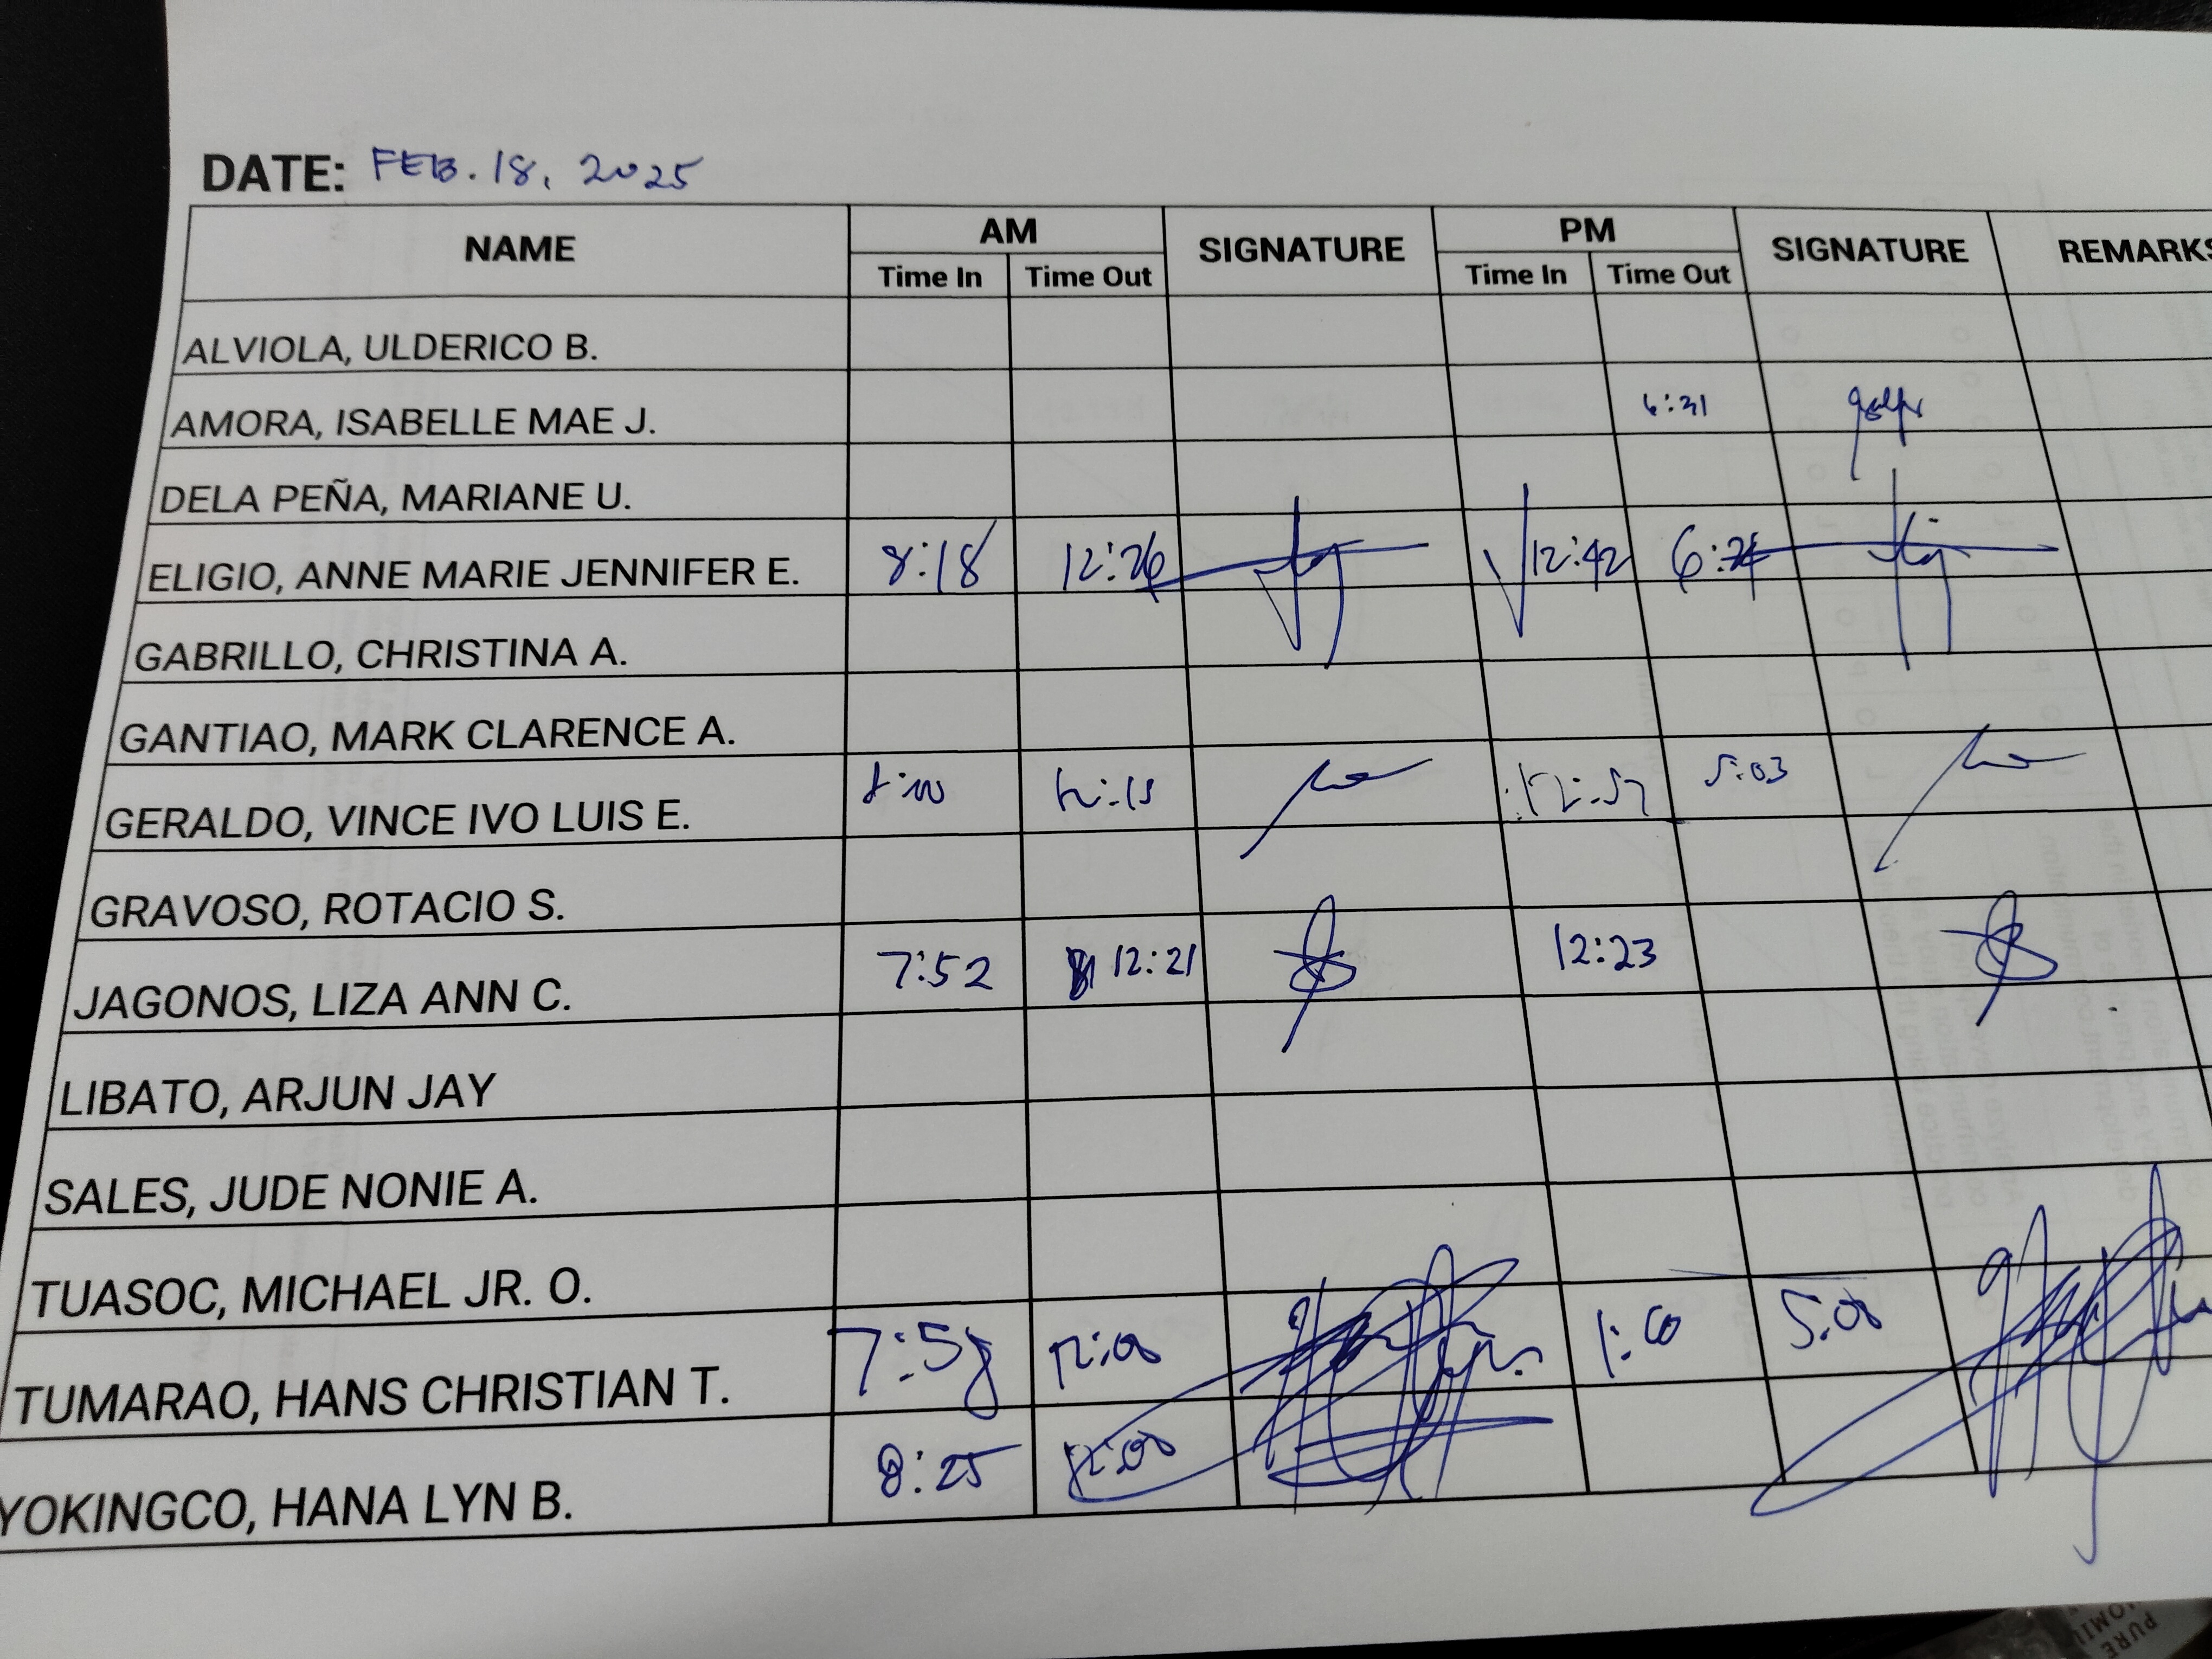 DATE: FEB. 18, 2025
NAME AM SIGNATURE PM SIGNATURE REMARKS
Time In Time Out Time In Time Out
ALVIOLA, ULDERICO B.
AMORA, ISABELLE MAE J. 6:31
DELA PEÑA, MARIANE U.
ELIGIO, ANNE MARIE JENNIFER E. 8:18 12:26 12:42
GABRILLO, CHRISTINA A.
GANTIAO, MARK CLARENCE A.
GERALDO, VINCE IVO LUIS E. 8:00 12:15 12:57 5:03
GRAVOSO, ROTACIO S.
JAGONOS, LIZA ANN C. 7:52 12:21 12:23
LIBATO, ARJUN JAY
SALES, JUDE NONIE A.
TUASOC, MICHAEL JR. O.
TUMARAO, HANS CHRISTIAN T. 7:58 12:00 1:00 5:00
YOKINGCO, HANA LYN B. 8:25 12:00
PURE